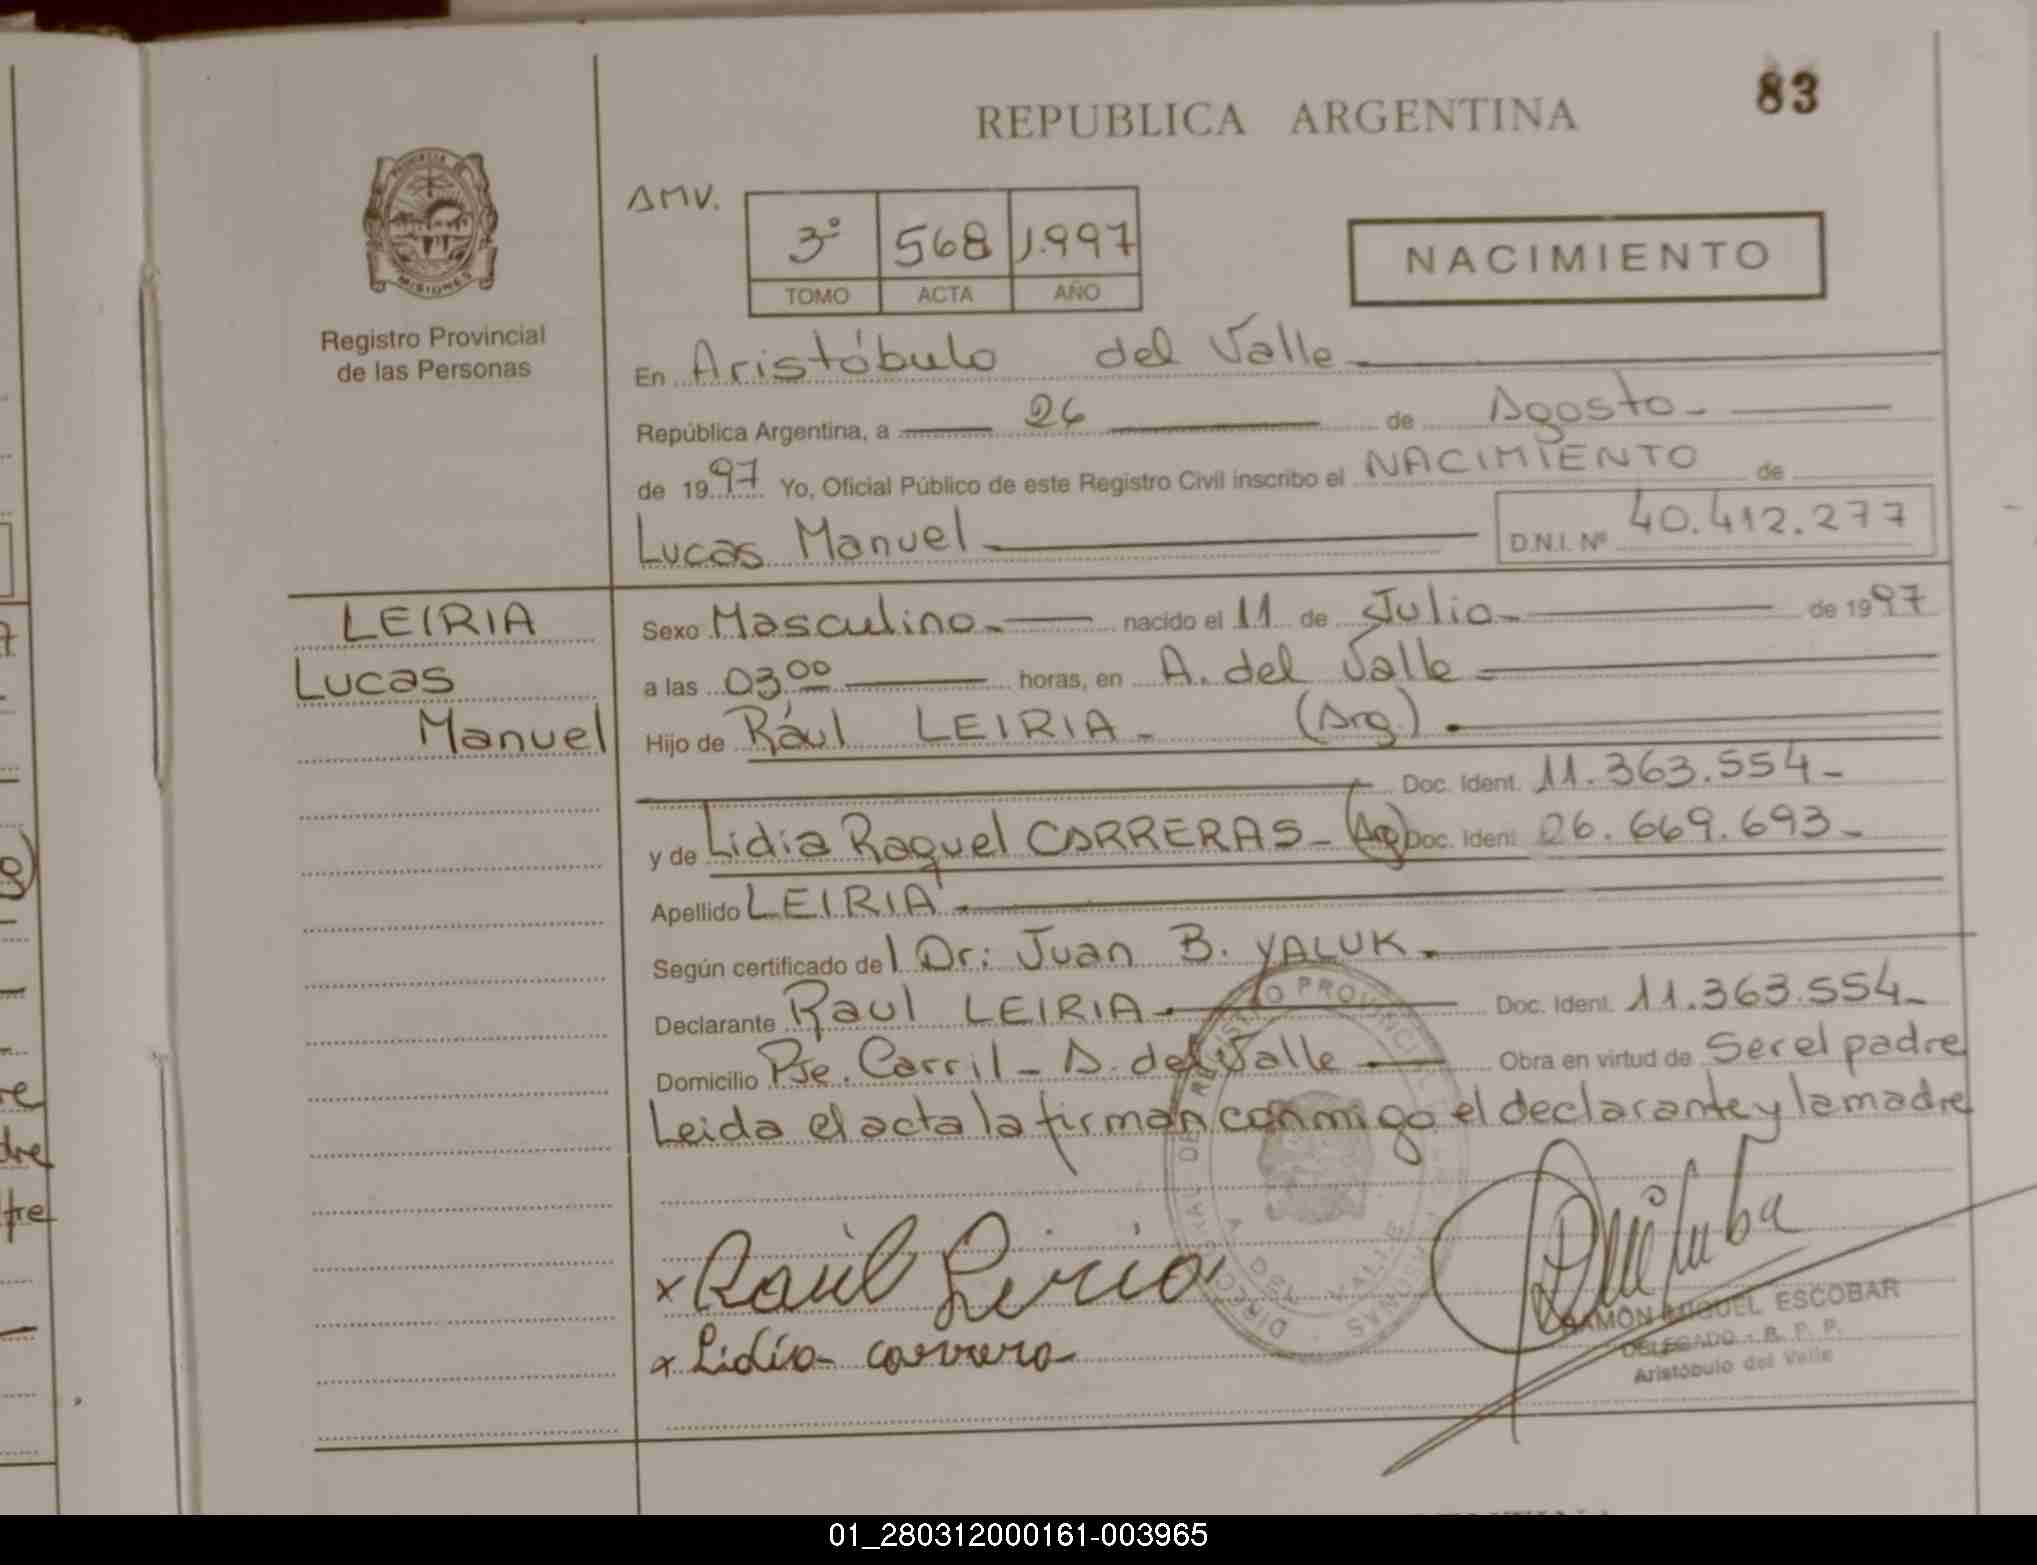 83
REPUBLICA ARGENTINA
PROVINCIA
MISIONES
Registro Provincial
de las Personas
AMV.
3º 568 1.997
TOMO ACTA AÑO
NACIMIENTO
En Aristóbulo del Valle
República Argentina, a 26 de Agosto
de 1997 Yo, Oficial Público de este Registro Civil inscribo el NACIMIENTO de
Lucas Manuel D.N.I. Nº 40.412.277
LEIRIA
Lucas
Manuel
Sexo Masculino nacido el 11 de Julio de 1997
a las 03 00 horas, en A. del Valle
Hijo de Rául LEIRIA (Arg.)
Doc. Ident. 11.363.554
y de Lidia Raquel CARRERAS (Arg) Doc. Ident. 26.669.693
Apellido LEIRIA
Según certificado del Dr: Juan B. YALUK
Declarante Raul LEIRIA Doc. Ident. 11.363.554
Domicilio Pje. Carril - A. del Valle Obra en virtud de Ser el padre
Leida el acta la firman conmigo el declarante y la madre
x Raúl Liria
x Lidia carrera
RAMON MIGUEL ESCOBAR
DELEGADO - R. P. P.
Aristóbulo del Valle
A. DEL VALLE
01_280312000161-003965